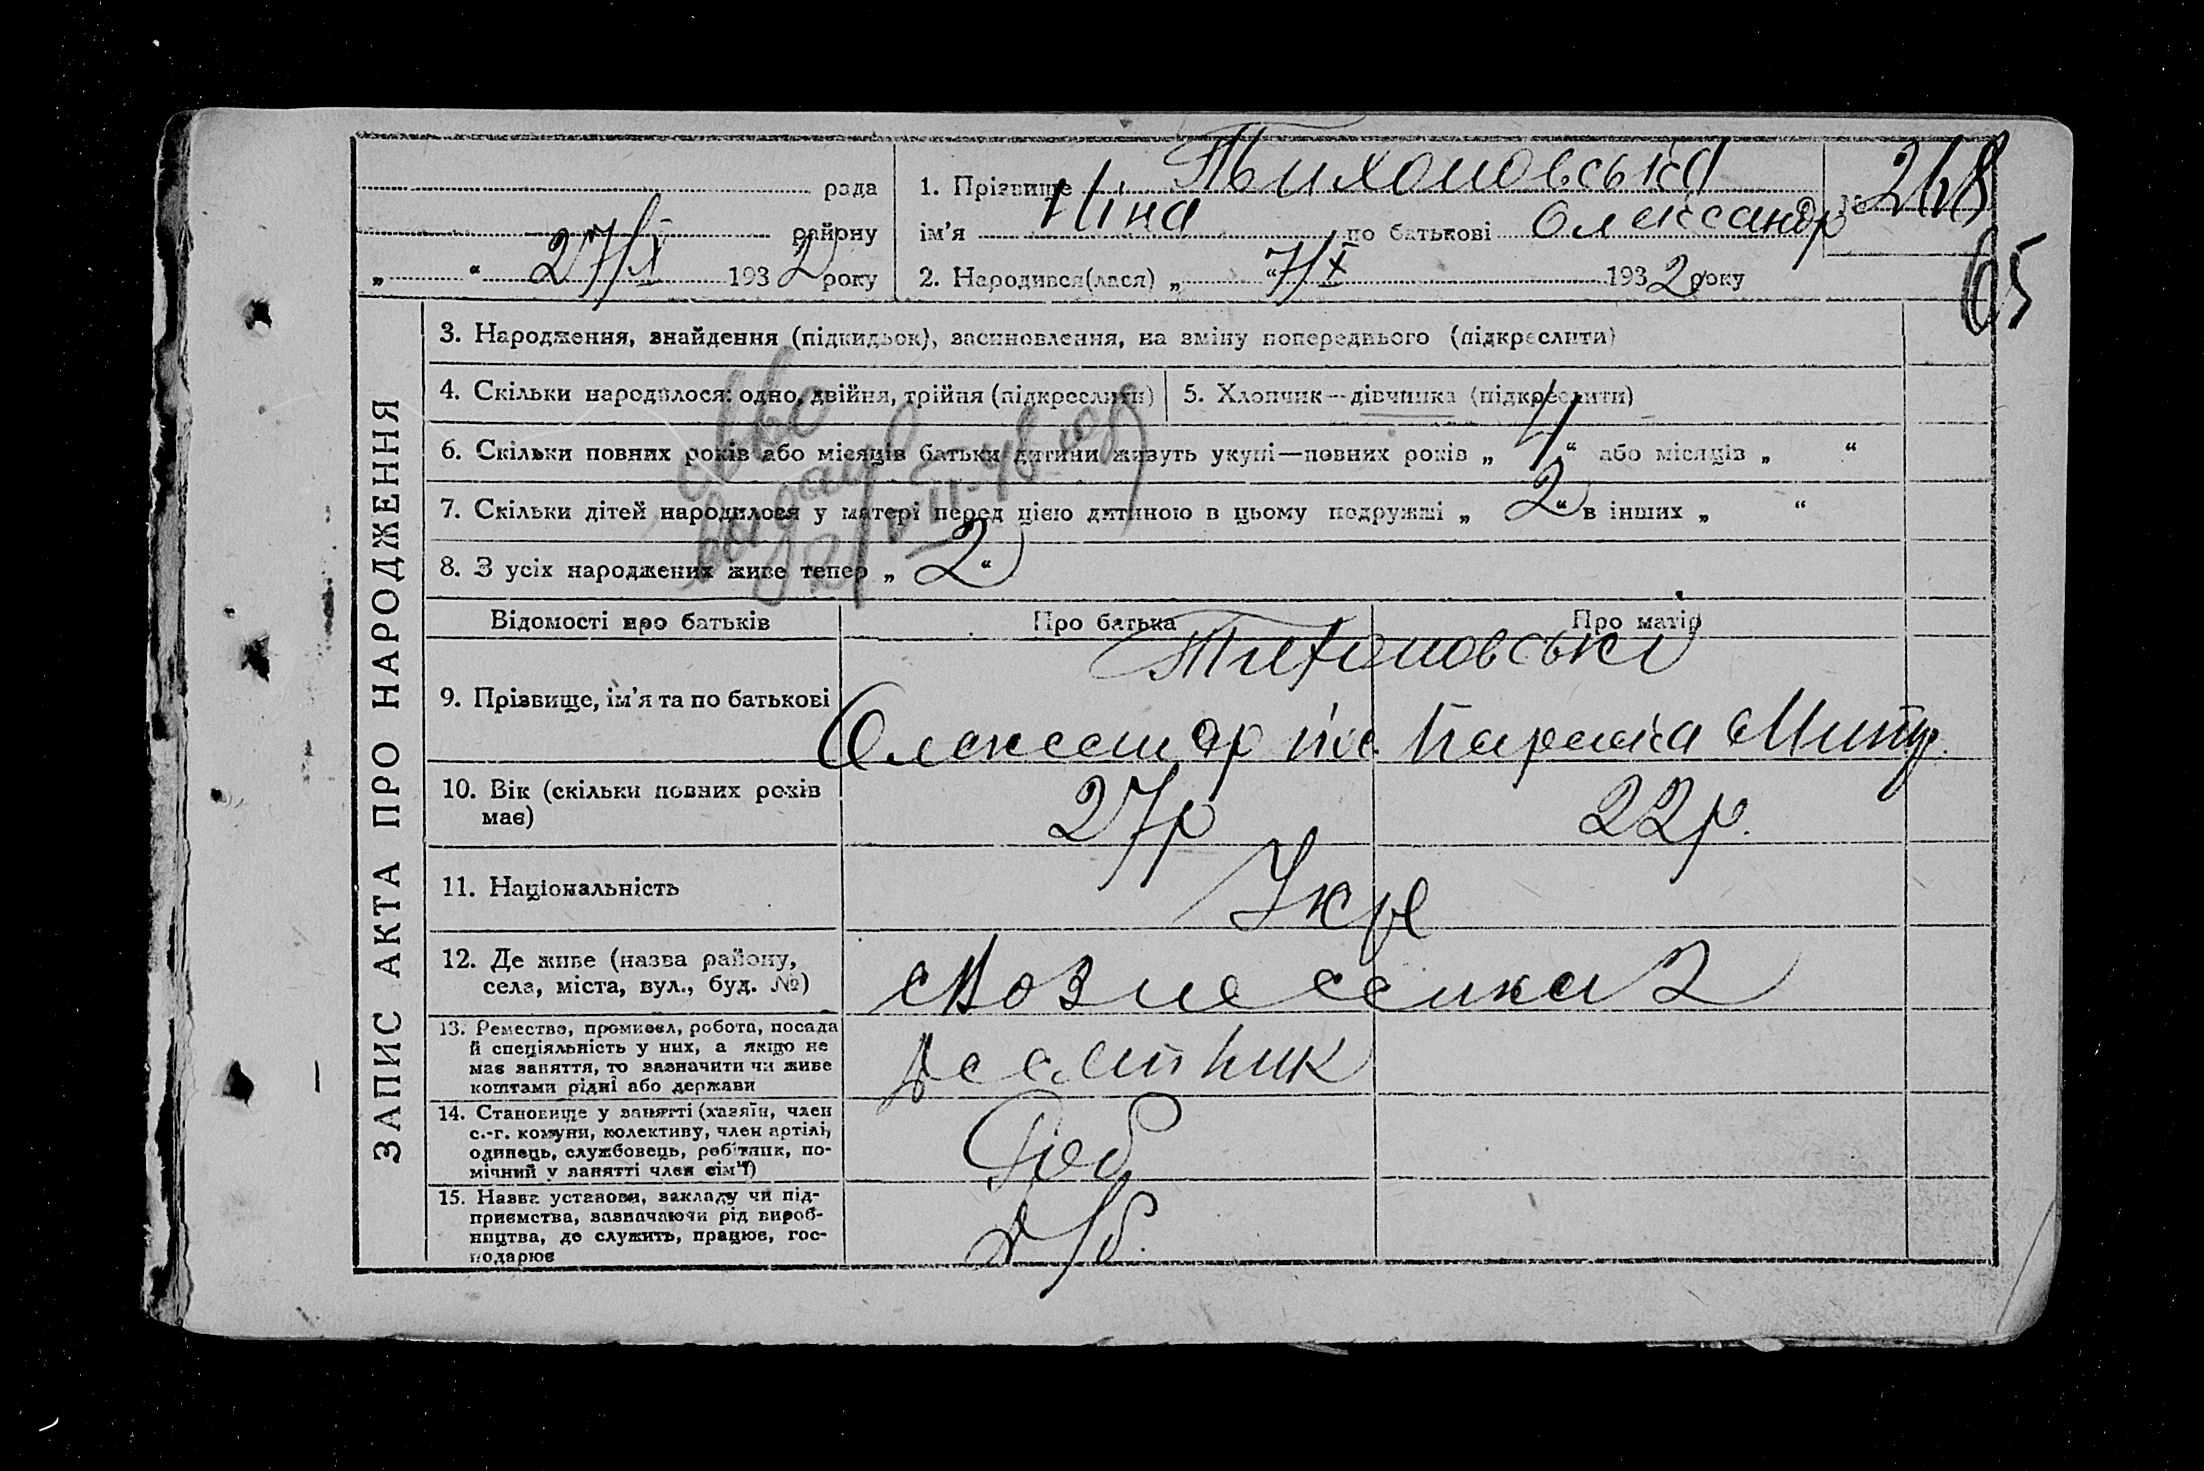 рада
району
„ “ 27/X 1932 року
1. Прізвище Тихоновська
ім’я Ніна по батькові Олександр
2. Народився(лася) „ “ 7/X 1932 року
№ 268
65
ЗАПИС АКТА ПРО НАРОДЖЕННЯ
3. Народження, знайдення (підкидьок), засиновлення, на зміну попереднього (підкреслити)
4. Скільки народилося: одно, двійня, трійня (підкреслити)
5. Хлопчик—дівчинка (підкреслити)
6. Скільки повних років або місяців батьки дитини живуть укупі—повних років „ 4 “ або місяців „ “
7. Скільки дітей народилося у матері перед цією дитиною в цьому подружжі „ 2 “ в інших „ “
8. З усіх народжених живе тепер „ 2 “
Відомості про батьків
Про батька
Про матір
9. Прізвище, ім’я та по батькові
Тихоновські
Олександр
Параска
10. Вік (скільки повних років
має)
27р
22р.
11. Національність
Укр
12. Де живе (назва району,
села, міста, вул., буд. №)
Вознесенка 2
13. Ремество, промисел, робота, посада
й спеціяльність у них, а якщо не
має заняття, то зазначити чи живе
коштами рідні або держави
Десятник
14. Становище у занятті (хазяїн, член
с.-г. комуни, колективу, член артілі,
одинець, службовець, робітник, по-
мічний у занятті член сім’ї)
Роб
15. Назва установи, закладу чи під-
приємства, зазначаючи рід вироб-
ництва, де служить, працює, гос-
подарює